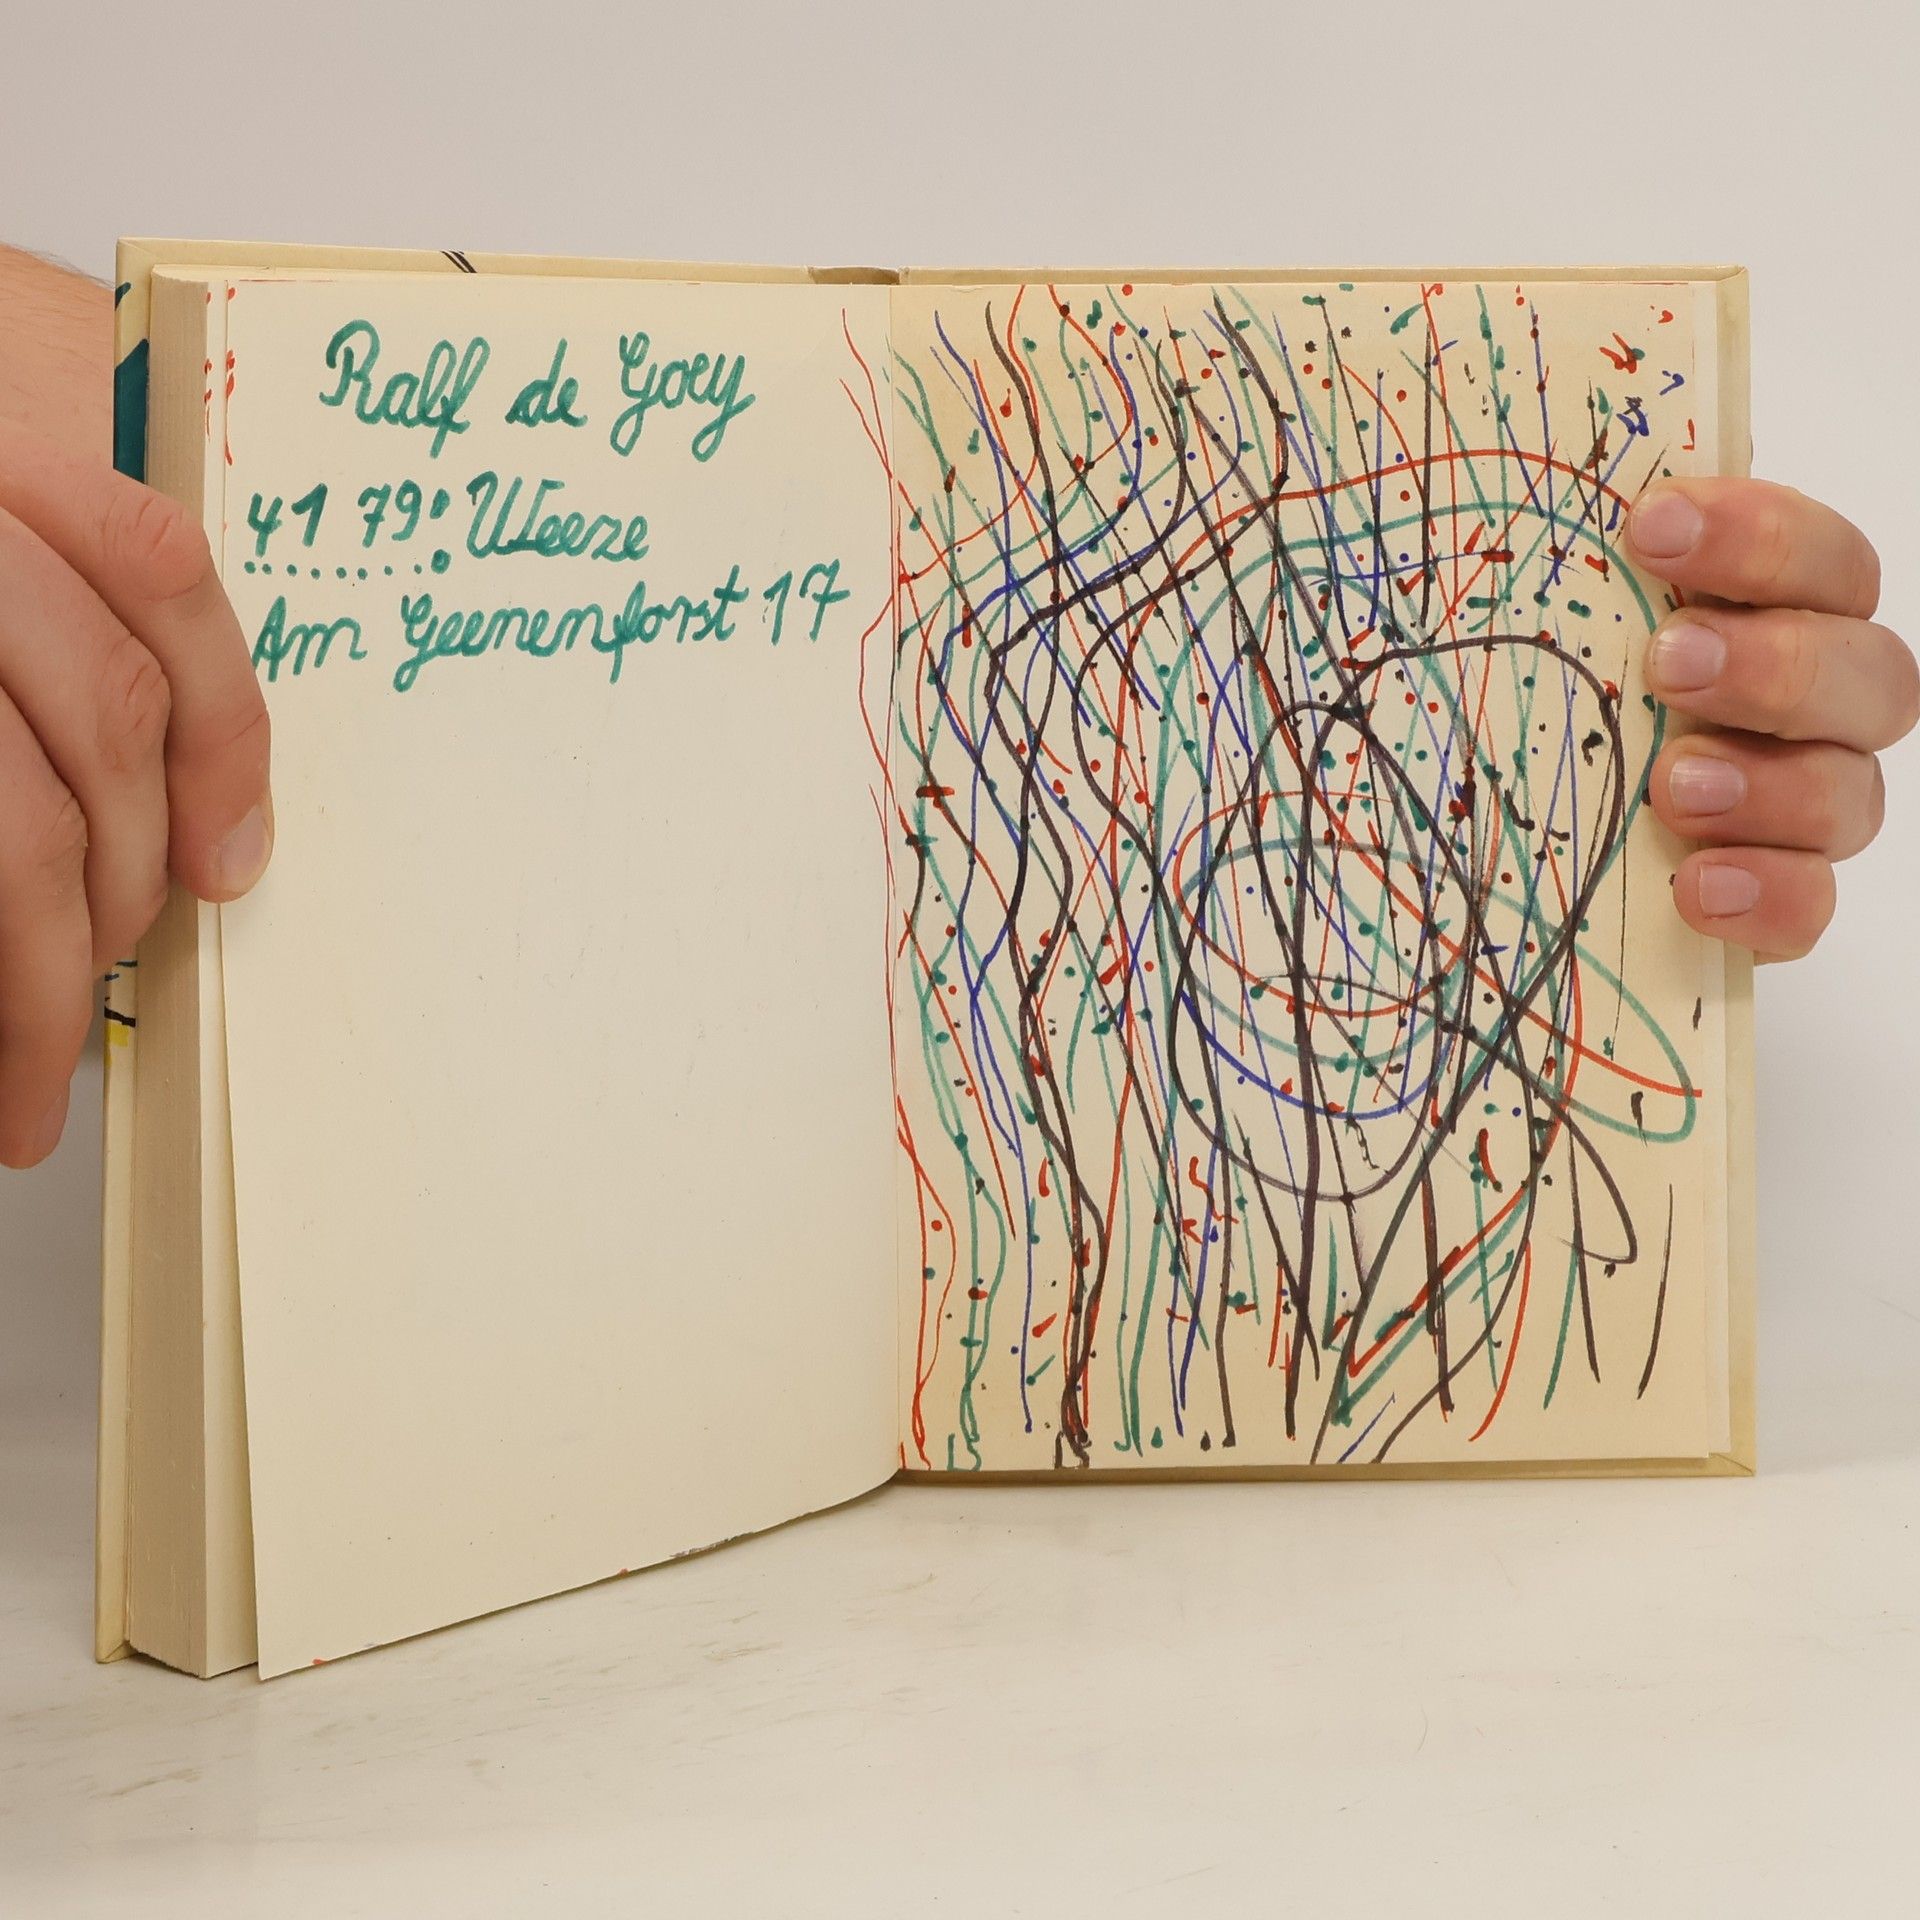 Ralf de Goey
41 79: Weeze
Am Geenenforst 17